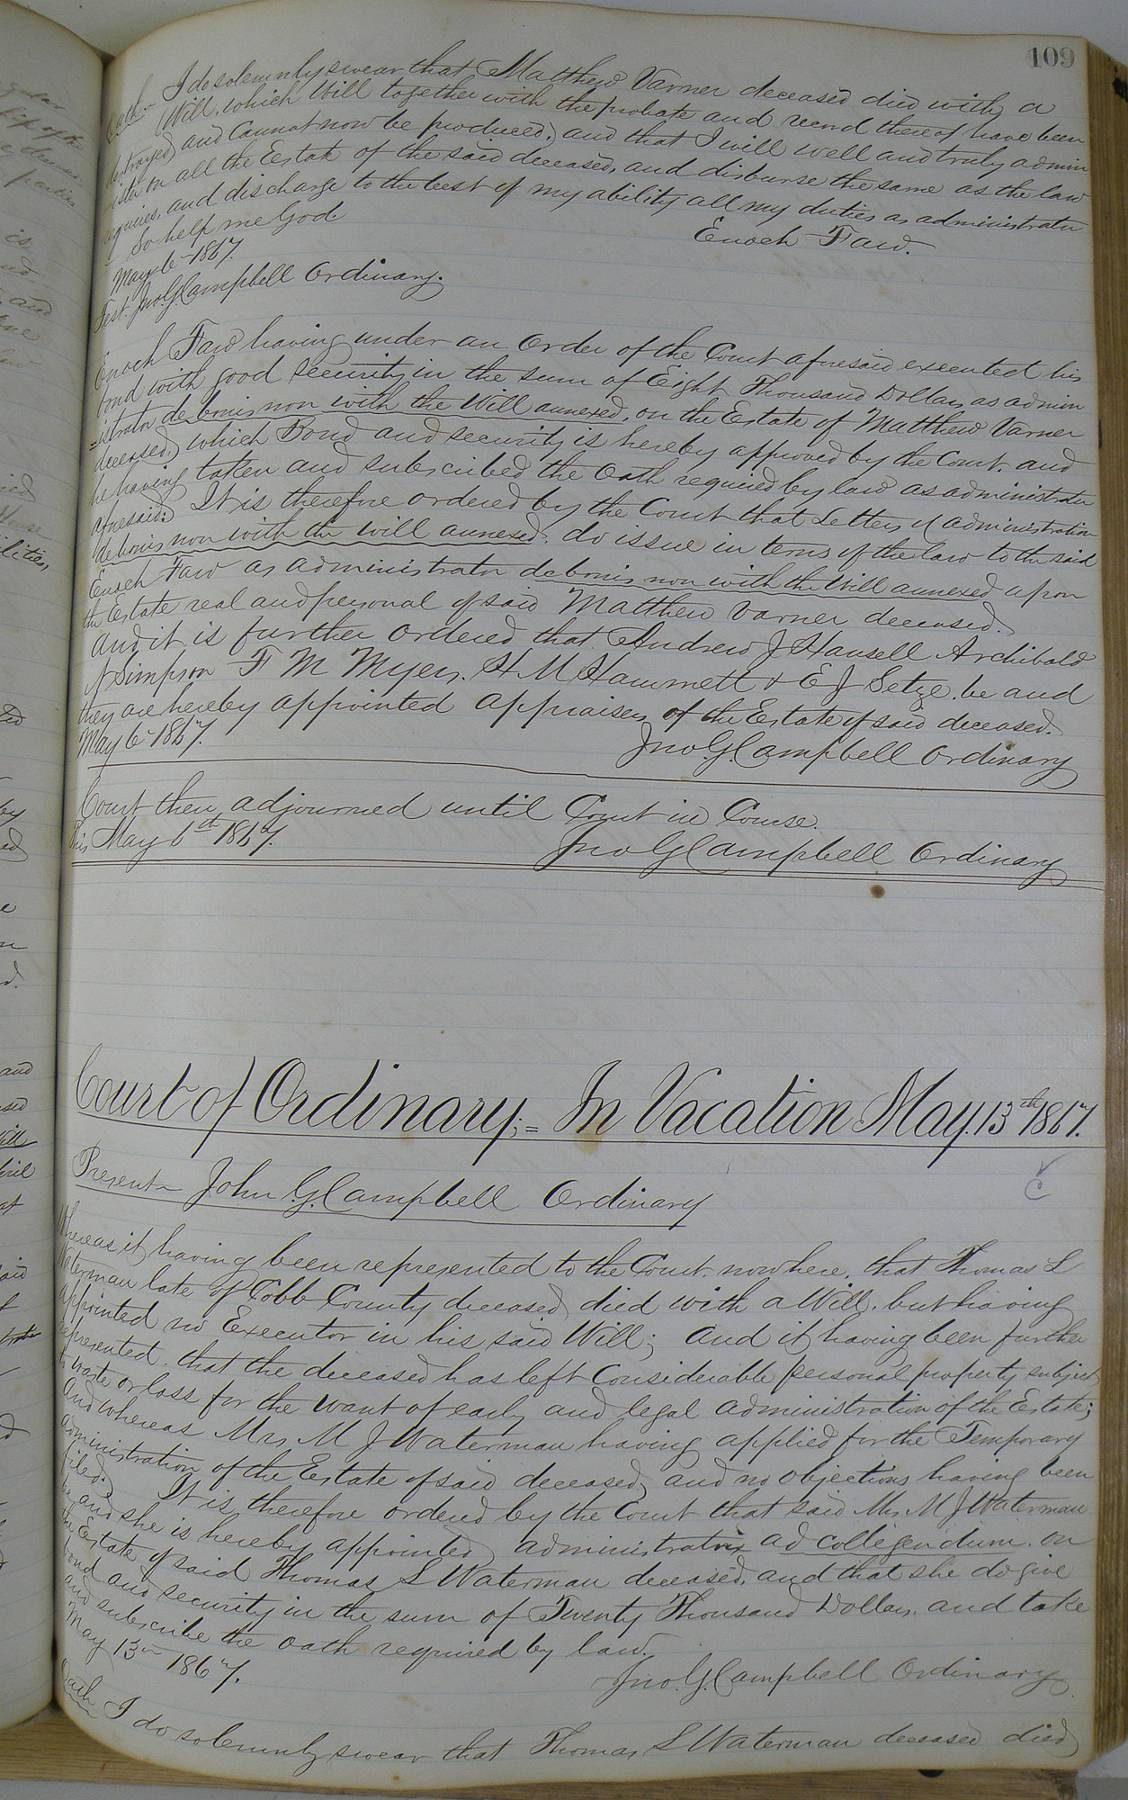 109
Oath I do solemnly swear that Matthew Varner deceased died with a
Will, which Will together with the probate and record thereof have been
destroyed and Cannot now be produced, and that I will well and truly admin
ister on all the Estate of the said deceased, and disburse the same as the law
requires, and discharge to the best of my ability all my duties as administrator
So help me God.
Enoch Faw.
May 6th 1867.
Test. Jno. G. Campbell Ordinary.
Enoch Faw having under an Order of the Court aforesaid executed his
bond with good security in the sum of Eight Thousand Dollars, as admin
=istrator de bonis non with the Will annexed, on the Estate of Matthew Varner
deceased, which Bond and security is hereby approved by the Court. and
he having taken and subscribed the Oath required by law as administrator
aforesaid: It is therefore ordered by the Court that Letters of administration
de bonis non with the will annexed. do issue in terms of the law to the said
Enoch Faw as administrator de bonis non with the Will annexed upon
the Estate real and personal of said Matthew Varner deceased.
And it is further Ordered that Andrew J Hansell Archibald
N Simpson F M Myers, H M Hammett & E J Setze. be and
they are hereby appointed appraisers of the Estate of said deceased.
May 6th 1867.
Jno. G. Campbell Ordinary
Court then adjourned until Court in Course.
this May 6th 1867.
Jno G Campbell Ordinary
Court of Ordinary;= In Vacation May. 13th 1867.
Present John G. Campbell Ordinary
Whereas it having been represented to the Court. now here, that Thomas L
Waterman late of Cobb County deceased died with a Will. but having
appointed no Executor in his said Will; And it having been further
represented. that the deceased has left Considerable personal property subject
to waste or loss for the want of early and legal administration of the Estate;
And whereas Mrs M J Waterman having applied for the Temporary
administration of the Estate of said deceased, and no Objections having been
filed. It is therefore ordered by the Court that said Mrs M J Waterman
be and she is hereby appointed administratrix ad collegendum. on
the Estate of said Thomas L Waterman deceased. and that she do give
bond and security in the sum of Twenty Thousand Dollars. and take
and subscribe the oath required by law.
May 13th 1867.
Jno. G. Campbell Ordinary
Oath I do solemnly swear that Thomas L Waterman deceased died